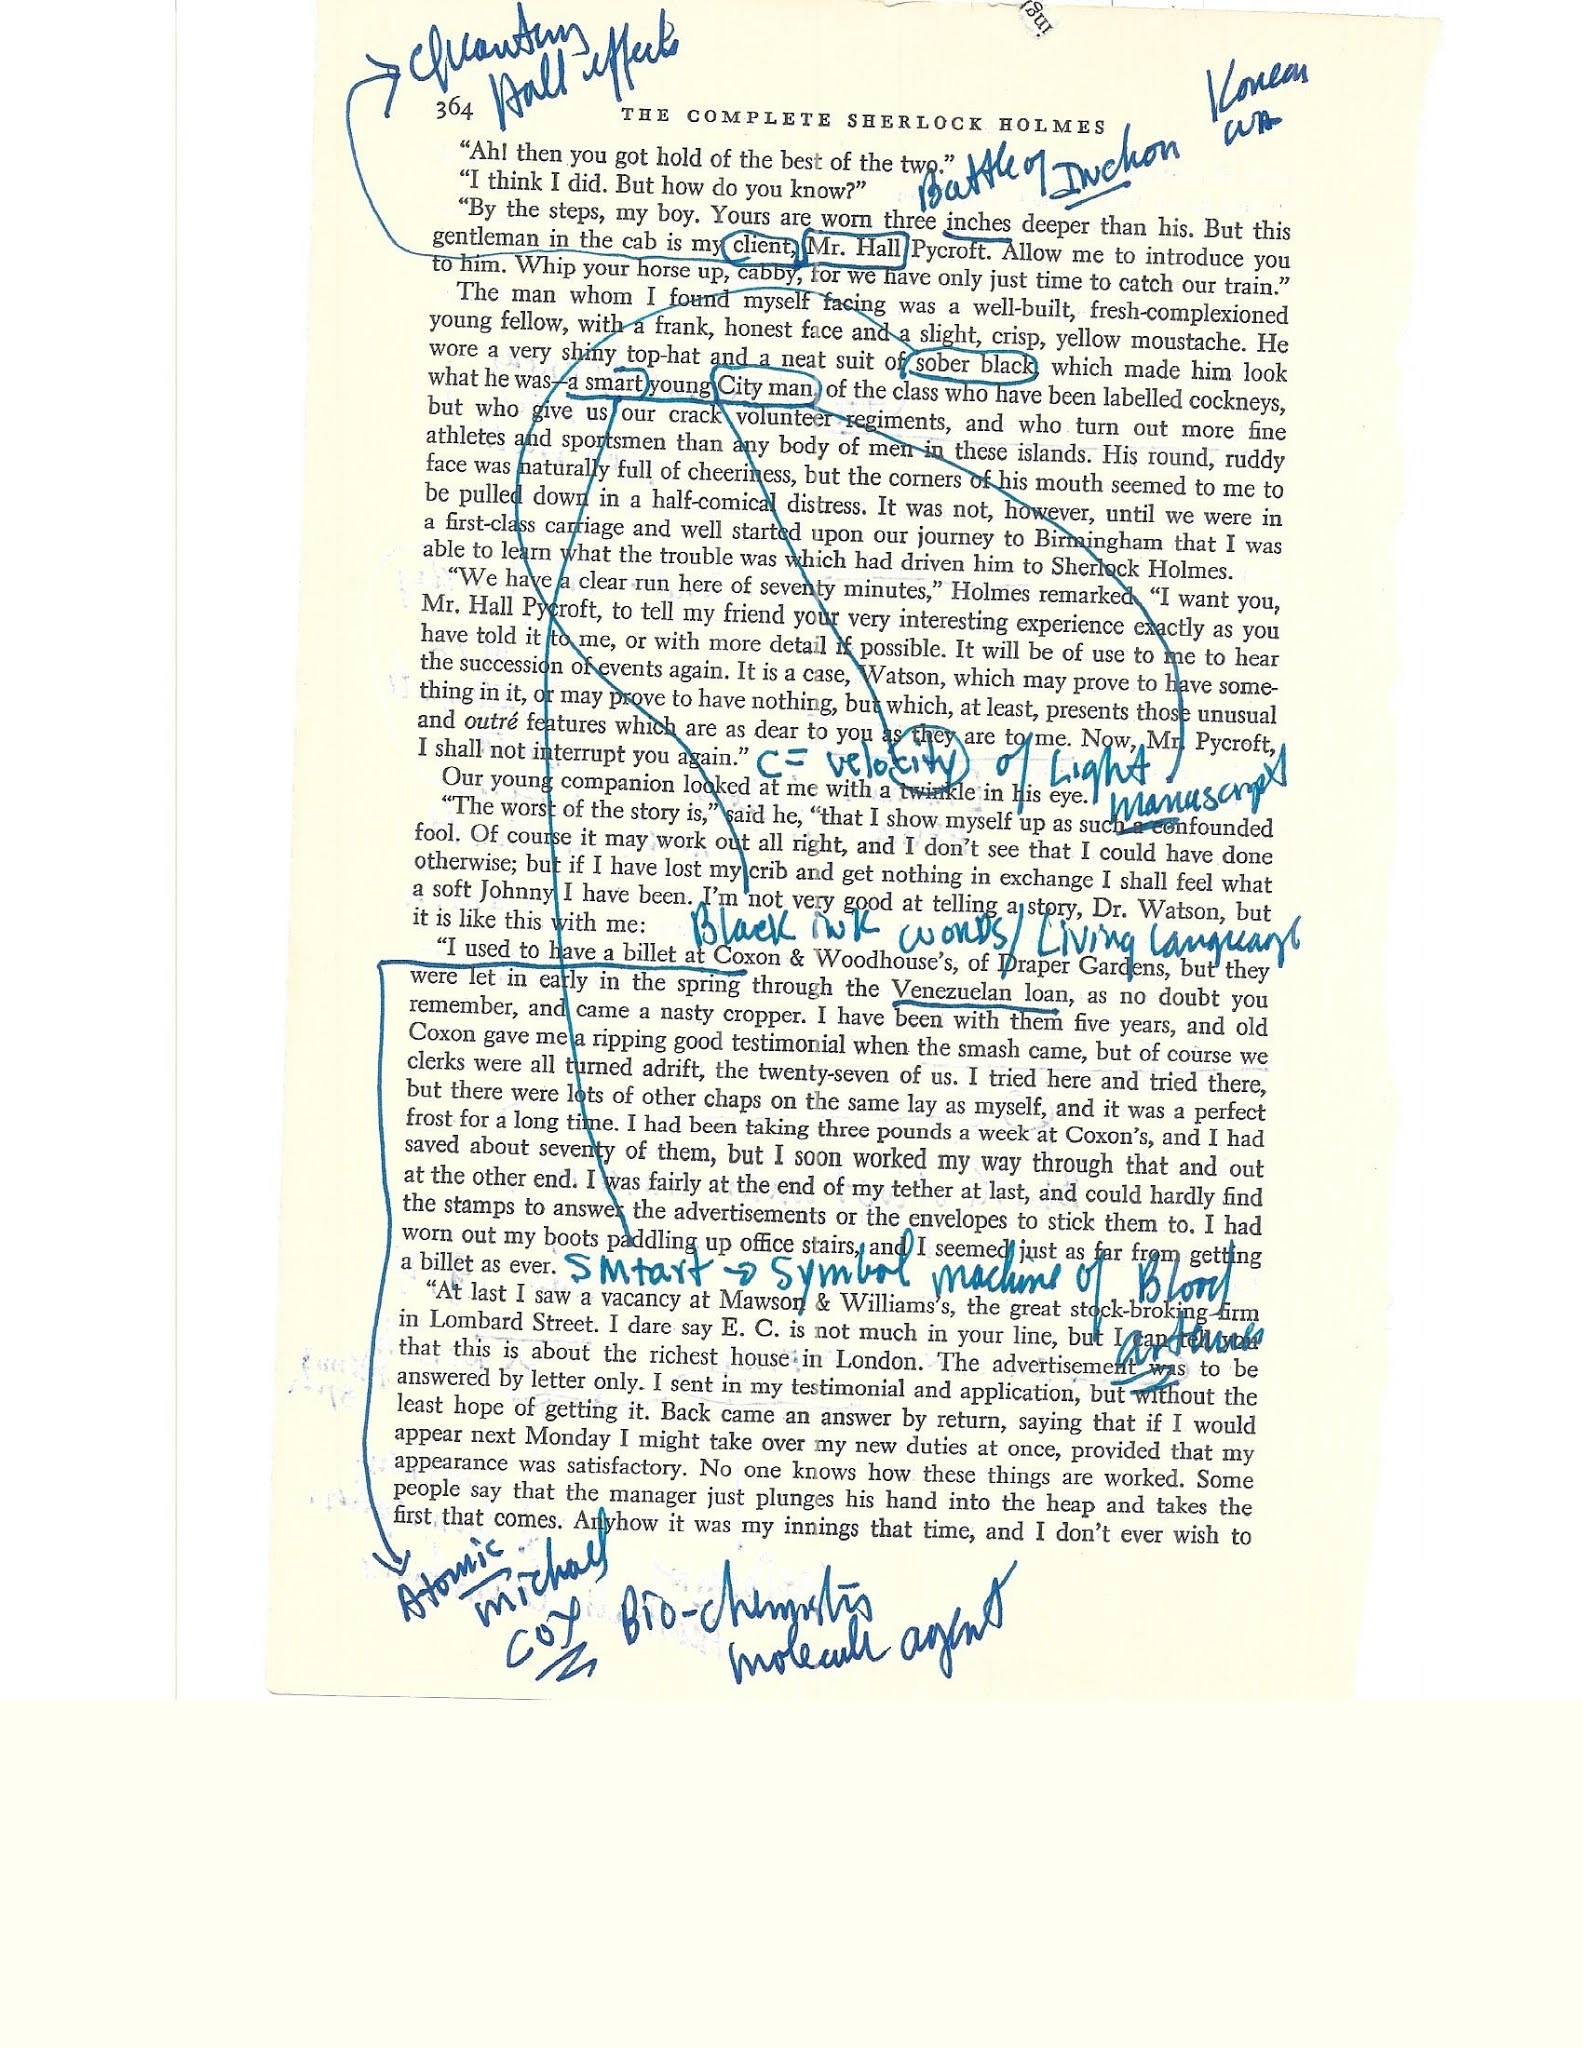 ing
Quantum
Hall effects
Korean
364
THE COMPLETE SHERLOCK HOLMES
Battle of Inchon
“Ah! then you got hold of the best of the two.”
“I think I did. But how do you know?”
“By the steps, my boy. Yours are worn three inches deeper than his. But this
gentleman in the cab is my client, Mr. Hall Pycroft. Allow me to introduce you
to him. Whip your horse up, cabby, for we have only just time to catch our train.”
The man whom I found myself facing was a well-built, fresh-complexioned
young fellow, with a frank, honest face and a slight, crisp, yellow moustache. He
wore a very shiny top-hat and a neat suit of sober black, which made him look
what he was—a smart young City man, of the class who have been labelled cockneys,
but who give us our crack volunteer regiments, and who turn out more fine
athletes and sportsmen than any body of men in these islands. His round, ruddy
face was naturally full of cheeriness, but the corners of his mouth seemed to me to
be pulled down in a half-comical distress. It was not, however, until we were in
a first-class carriage and well started upon our journey to Birmingham that I was
able to learn what the trouble was which had driven him to Sherlock Holmes.
“We have a clear run here of seventy minutes,” Holmes remarked. “I want you,
Mr. Hall Pycroft, to tell my friend your very interesting experience exactly as you
have told it to me, or with more detail if possible. It will be of use to me to hear
the succession of events again. It is a case, Watson, which may prove to have some-
thing in it, or may prove to have nothing, but which, at least, presents those unusual
and outré features which are as dear to you as they are to me. Now, Mr. Pycroft,
I shall not interrupt you again.”
c = velocity of Light
manuscript
Our young companion looked at me with a twinkle in his eye.
“The worst of the story is,” said he, “that I show myself up as such a confounded
fool. Of course it may work out all right, and I don’t see that I could have done
otherwise; but if I have lost my crib and get nothing in exchange I shall feel what
a soft Johnny I have been. I’m not very good at telling a story, Dr. Watson, but
it is like this with me:
Black ink words / Living language
“I used to have a billet at Coxon & Woodhouse’s, of Draper Gardens, but they
were let in early in the spring through the Venezuelan loan, as no doubt you
remember, and came a nasty cropper. I have been with them five years, and old
Coxon gave me a ripping good testimonial when the smash came, but of course we
clerks were all turned adrift, the twenty-seven of us. I tried here and tried there,
but there were lots of other chaps on the same lay as myself, and it was a perfect
frost for a long time. I had been taking three pounds a week at Coxon’s, and I had
saved about seventy of them, but I soon worked my way through that and out
at the other end. I was fairly at the end of my tether at last, and could hardly find
the stamps to answer the advertisements or the envelopes to stick them to. I had
worn out my boots paddling up office stairs, and I seemed just as far from getting
a billet as ever.
SMtart → Symbol machine of Blood
“At last I saw a vacancy at Mawson & Williams’s, the great stock-broking firm
in Lombard Street. I dare say E. C. is not much in your line, but I can tell you
that this is about the richest house in London. The advertisement was to be
answered by letter only. I sent in my testimonial and application, but without the
least hope of getting it. Back came an answer by return, saying that if I would
appear next Monday I might take over my new duties at once, provided that my
appearance was satisfactory. No one knows how these things are worked. Some
people say that the manager just plunges his hand into the heap and takes the
first that comes. Anyhow it was my innings that time, and I don’t ever wish to
Atomic
michael
cox
Bio-chemistis
molecule agent